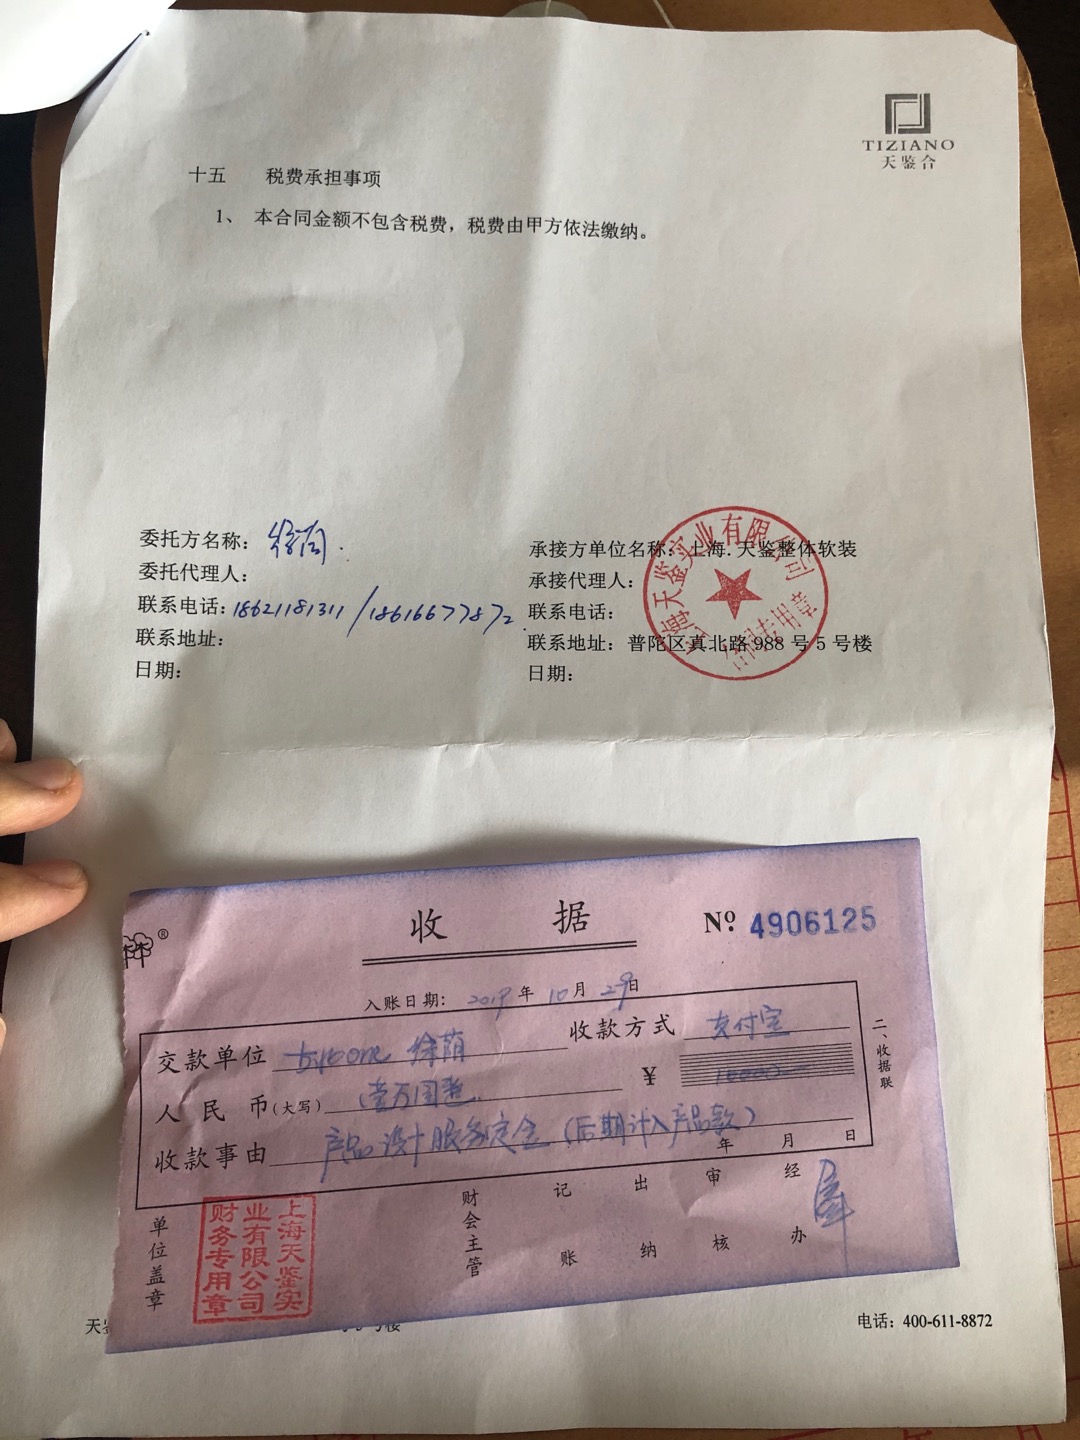 TIZIANO
天鉴合
十五 税费承担事项
1、 本合同金额不包含税费，税费由甲方依法缴纳。
委托方名称：徐荫.
委托代理人：
联系电话：18621181311/18616677872.
联系地址：
日期：
承接方单位名称：上海.天鉴整体软装
承接代理人：
联系电话：
联系地址：普陀区真北路 988 号 5 号楼
日期：
上海天鉴实业有限公司
合同专用章
收 据
Nº 4906125
入账日期：2019 年 10 月 29 日
交款单位 徐荫
收款方式 支付宝
人民币(大写) 壹万圆整
¥ 10000
收款事由 产品设计服务定金（后期计入产品款）
年 月 日
二、收据联
单位盖章
财会主管
记账
出纳
审核
经办
上海天鉴实
业有限公司
财务专用章
天鉴
号楼
电话：400-611-8872